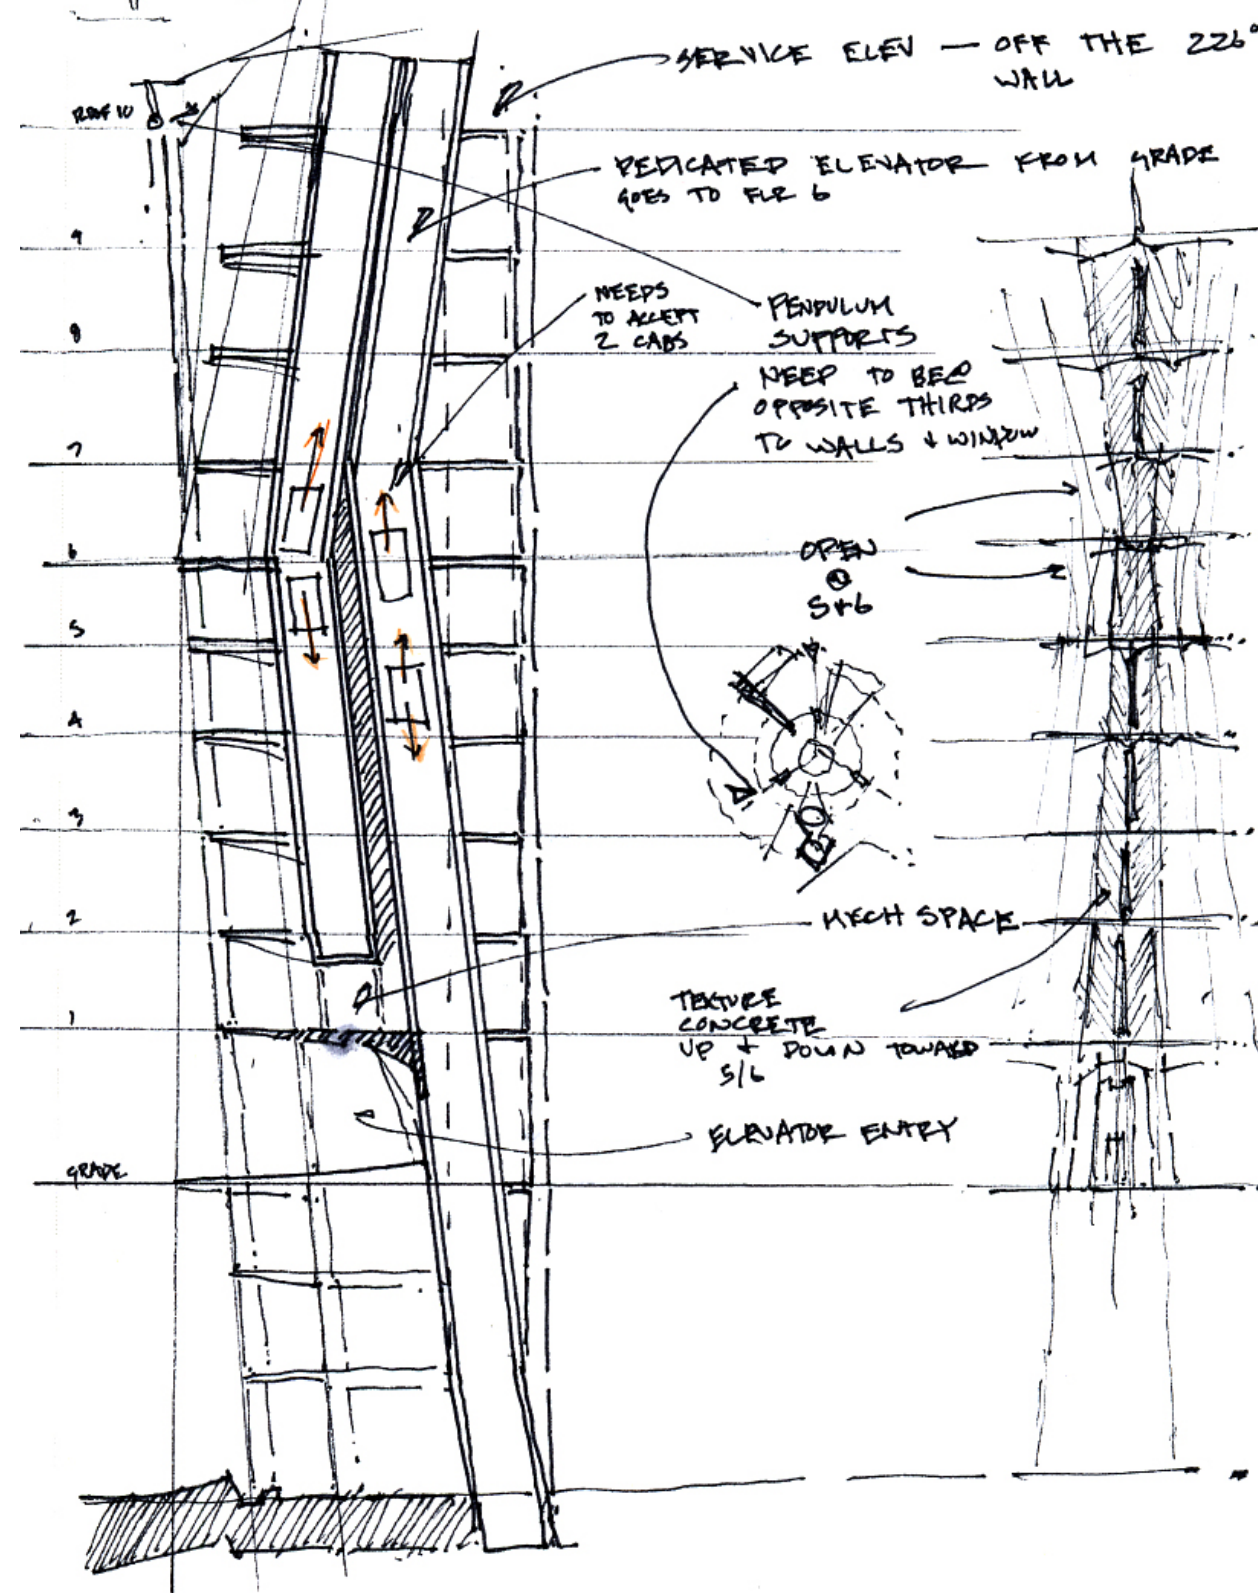 SERVICE ELEV — OFF THE 226°
WALL
ROOF 10
DEDICATED ELEVATOR FROM GRADE
GOES TO FLR 6
9
NEEDS
TO ACCEPT
2 CABS
PENDULUM
SUPPORTS
8
NEED TO BE @
OPPOSITE THIRDS
TO WALLS & WINDOW
7
6
OPEN
@
5+6
5
4
3
2
MECH SPACE
TEXTURE
CONCRETE
UP & DOWN TOWARD
5/6
1
ELEVATOR ENTRY
GRADE